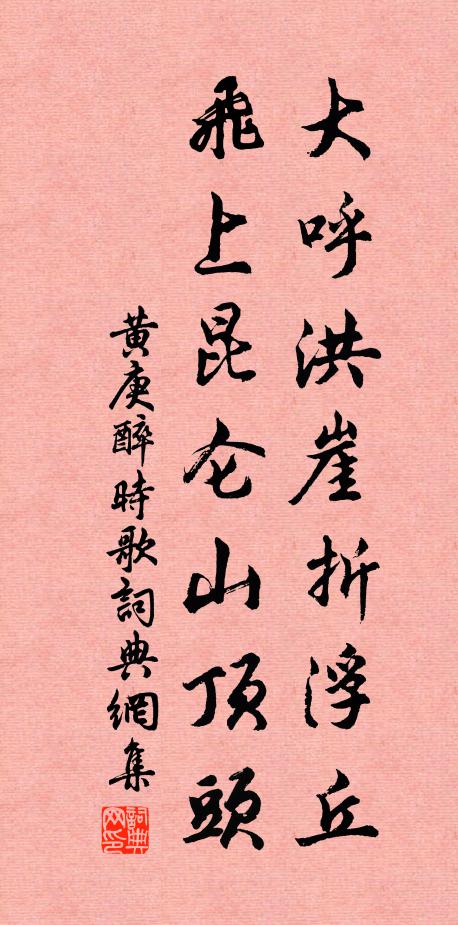 大呼洪崖折浮丘
飛上昆仑山顶頭
黄庚醉時歌詞典網集
詞典網印